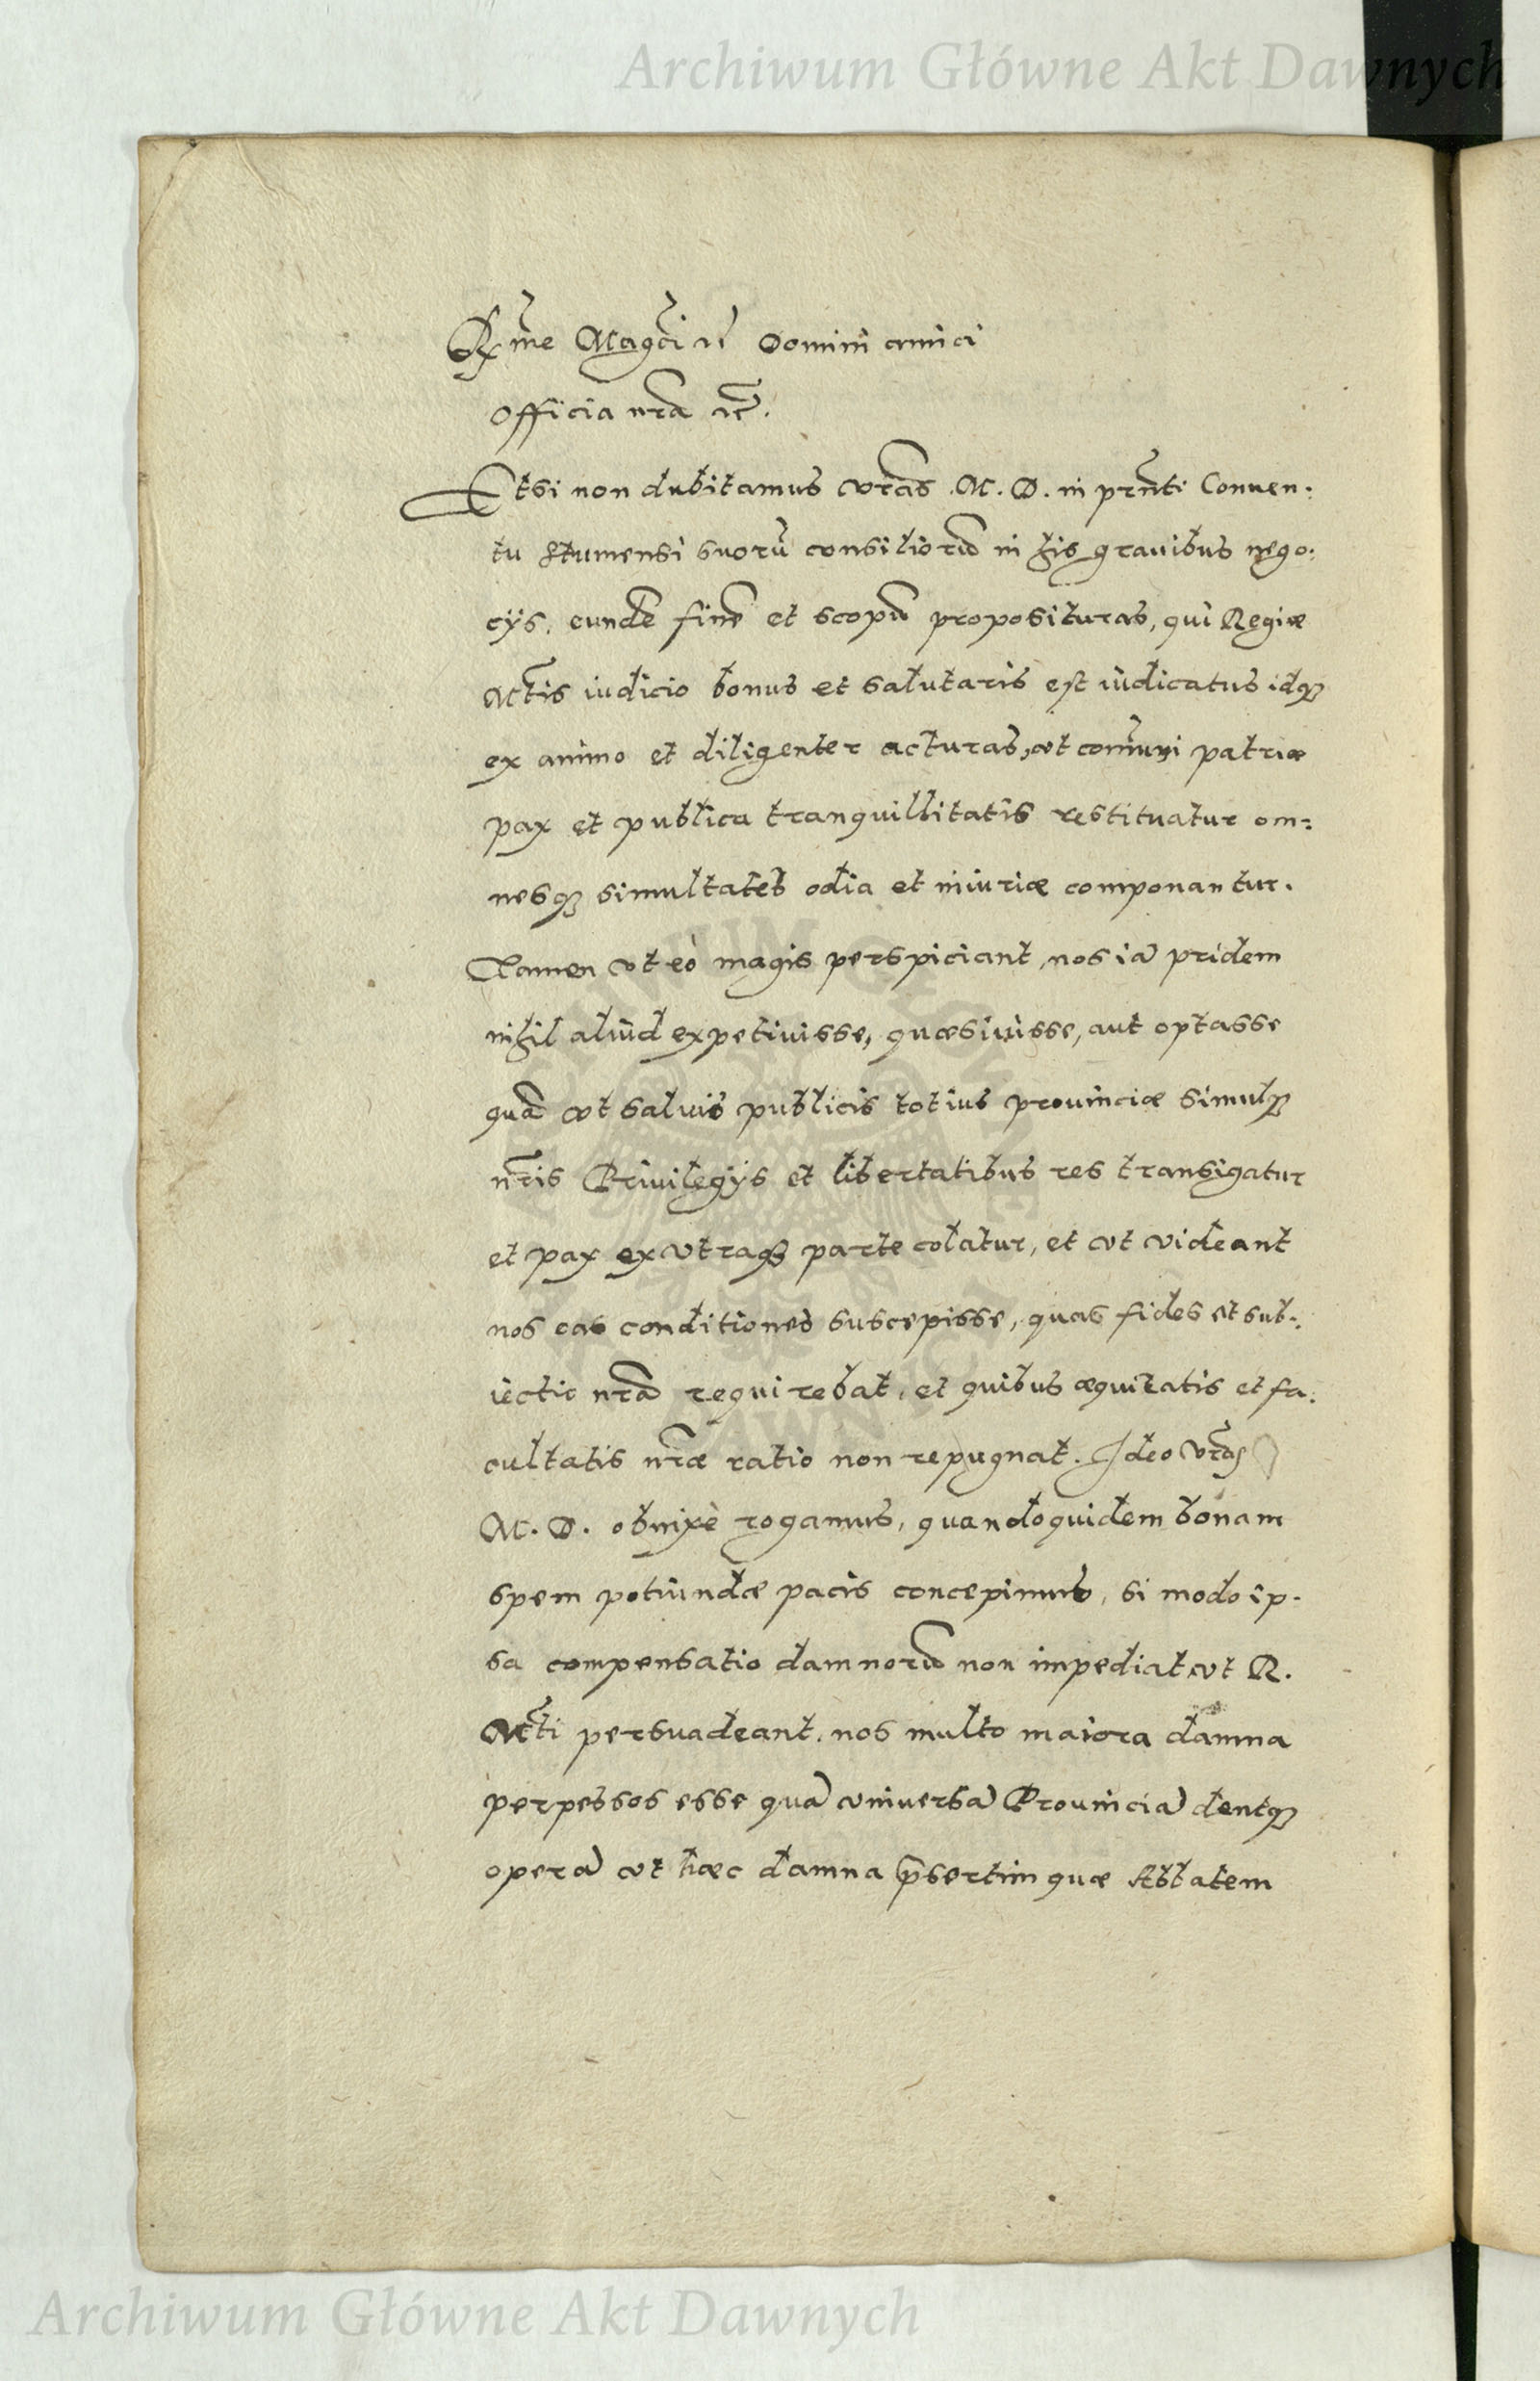 Archiwum Główne Akt Dawnych
Rx̃me Magc̃i ac̃ Domini amici
Officia nr̃a ac̃.
Etsi non dubitamus vr̃as M. D. in prñti Conuen:
tu Stumensi suorũ consiliorũ in his grauibus nego:
cÿs, eundẽ finẽ et scopũ proposituras, qui Regiæ
Mt̃is iudicio bonus et salutaris est iudicatus idq₃
ex animo et diligenter acturas, vt com̃uni patriæ
pax et publica tranquillitatis restituatur om:
nesq₃ simultates odia et iniuriæ componantur.
Tamen vt eò magis perspiciant, nos iã pridem
nihil aliud expetiuisse, quæsiuisse, aut optasse
quã vt saluis publicis totius prouinciæ simulq₃
nr̃is Priuilegÿs et libertatibus res transigatur
et pax ex vtraq₃ parte colatur, et vt videant
nos eas conditiones suscepisse, quas fides et sub:
iectio nr̃a requirebat, et quibus æquitatis et fa:
cultatis nr̃æ ratio non repugnat. Ideo vr̃as
M. D. obnixè rogamus, quandoquidem bonam
spem potiundæ pacis concepimus, si modo ip:
sa compensatio damnorũ non impediat, vt R.
Mt̃i persuadeant, nos multo maiora damna
perpessos esse quã vniuersã Prouinciã dentq₃
operã vt hæc damna p̃sertim quæ Abbatem
Archiwum Główne Akt Dawnych